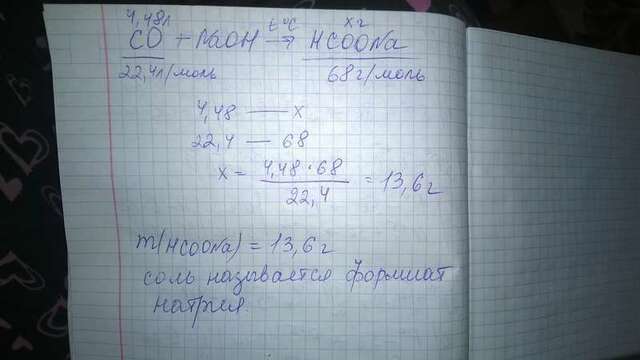 4,48л xг
CO + NaOH t°C → HCOONa
22,4л/моль 68г/моль
4,48 — x
22,4 — 68
x = 4,48·68 / 22,4 = 13,6г
m(HCOONa) = 13,6г
соль называется формиат
натрия